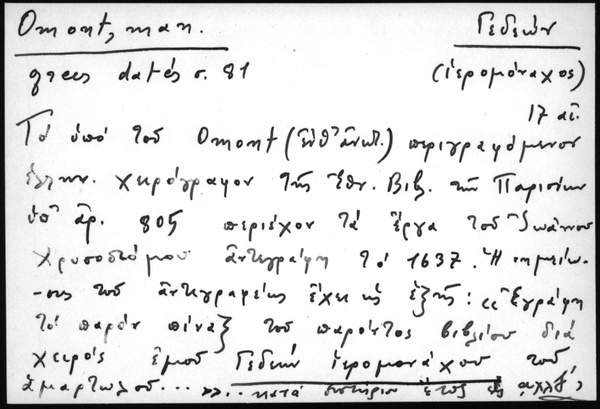 Omont, man. Γεδεών
grecs datés σ. 81 (ἱερομόναχος)
17 αἰ.
Τό ὑπό τοῦ Omont (ἔνθ' ἀνωτ.) περιγραφόμενον
ἑλλην. χειρόγραφον τῆς Ἐθν. Βιβλ. τῶν Παρισίων
ὑπ' ἀρ. 805 περιέχον τά ἔργα τοῦ Ἰωάννου
Χρυσοστόμου ἀντεγράφη τό 1637. Ἡ σημείω-
-σις τοῦ ἀντιγραφέως ἔχει ὡς ἑξῆς: «Ἐγράφη
τό παρόν πίναξ τοῦ παρόντος βιβλίου διά
χειρός ἐμοῦ Γεδεών ἱερομονάχου τοῦ
ἁμαρτωλοῦ... »... κατά σωτήριον ἔτος